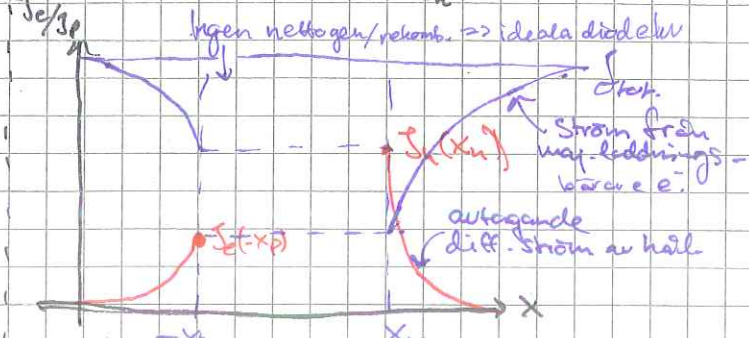 Je/Jp
Ingen nettogen/rekomb. => ideala diodekv
Jtot.
Ström från
maj.laddnings-
bärare e.
Jh(xn)
avtagande
diff. ström av hål
Je(-xp)
X